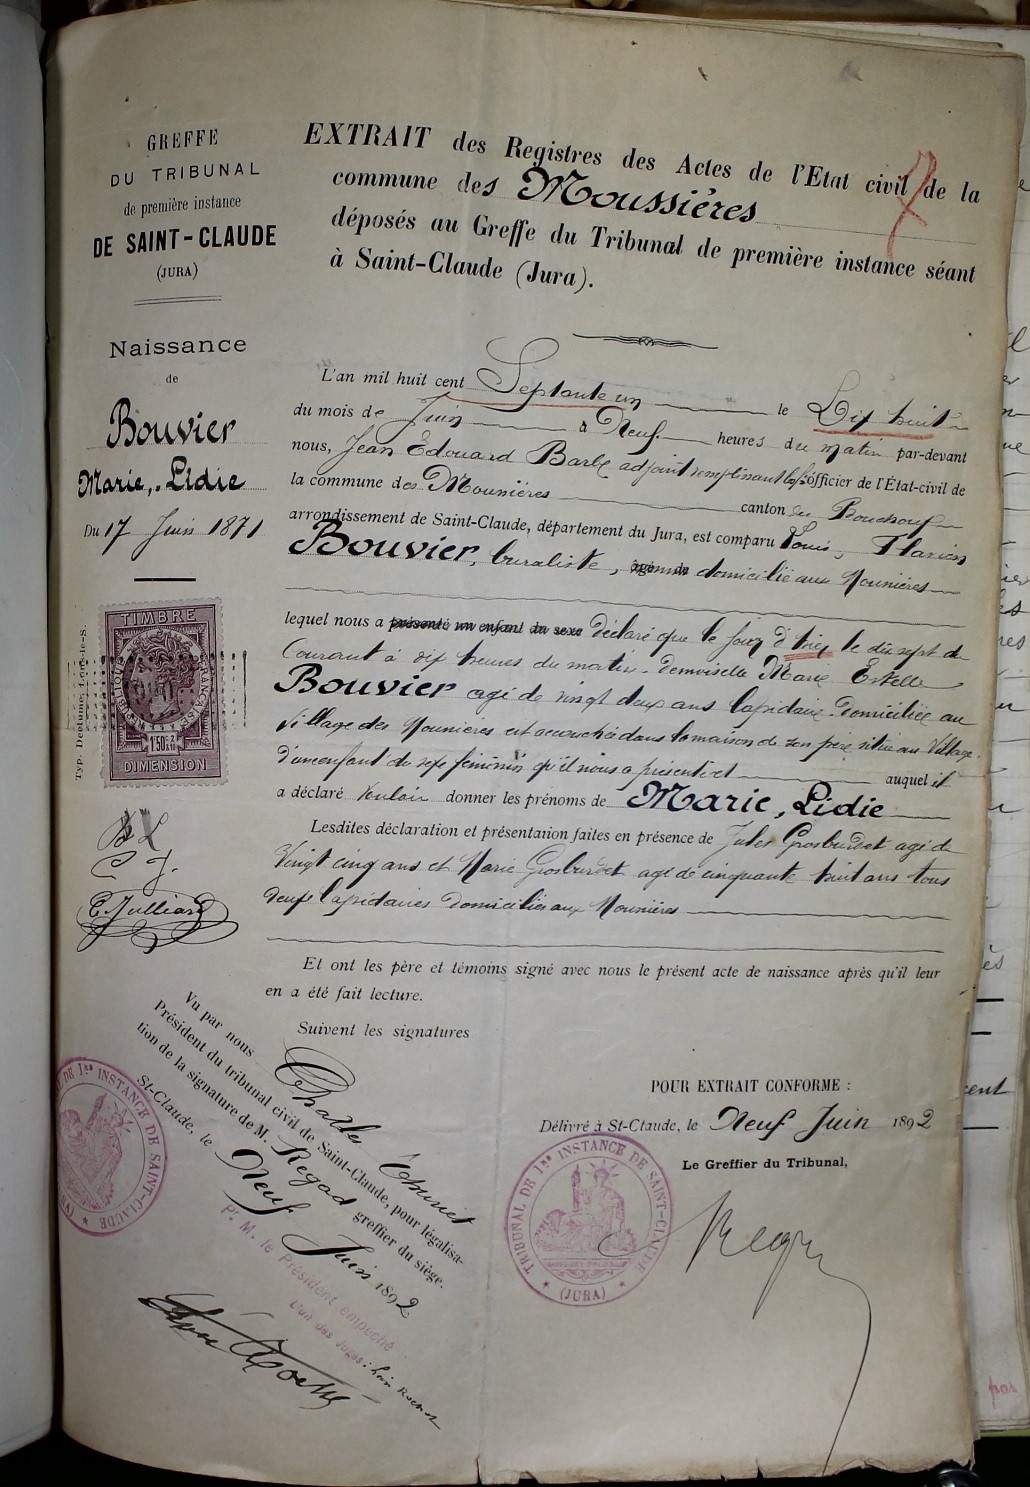 GREFFE
DU TRIBUNAL
de première instance
DE SAINT-CLAUDE
(JURA)
Naissance
de
Bouvier
Marie, Lidie
Du 17 Juin 1871
TIMBRE
RÉPUBLIQUE FRANÇAISE
1f50c
DIMENSION
C. Julliard
EXTRAIT des Registres des Actes de l'Etat civil de la
commune des Moussières
déposés au Greffe du Tribunal de première instance séant
à Saint-Claude (Jura).
L'an mil huit cent Septante un le Dix huit
du mois de Juin à Neuf heures du matin par-devant
nous, Jean Edouard Barbe adjoint remplissant les fs officier de l'État-civil de
la commune des Mounières canton du Bouchoux
arrondissement de Saint-Claude, département du Jura, est comparu Louis, Flavien
Bouvier, buraliste, âgé de domicilié aux Mounières
lequel nous a présenté un enfant du sexe déclaré que le jour d'hier le dix sept du
Courant à dix heures du matin Demoiselle Marie Estelle
Bouvier agé de vingt deux ans lapidaire Domiciliée au
Village des Mounières est accouchée dans la maison de son père située au Village
d'un enfant de sexe féminin qu'il nous a présenté et auquel il
a déclaré vouloir donner les prénoms de Marie, Lidie
Lesdites déclaration et présentation faites en présence de Jules Grosburdet agé de
Vingt cinq ans et Marie Grosburdet agé de cinquante huit ans tous
deux lapidaires domiciliés aux Mounières
Et ont les père et témoins signé avec nous le présent acte de naissance après qu'il leur
en a été fait lecture.
Suivent les signatures
Vu par nous
Président du tribunal civil de Saint-Claude, pour légalisa-
tion de la signature de M. Regad greffier du siège.
St-Claude, le Neuf Juin 1892
Pr M. le Président empêché
L'un des Juges:
TRIBUNAL DE 1re INSTANCE DE SAINT-CLAUDE
(JURA)
POUR EXTRAIT CONFORME :
Délivré à St-Claude, le Neuf Juin 1892
Le Greffier du Tribunal,
Regad
TRIBUNAL DE 1re INSTANCE DE SAINT-CLAUDE
(JURA)
par